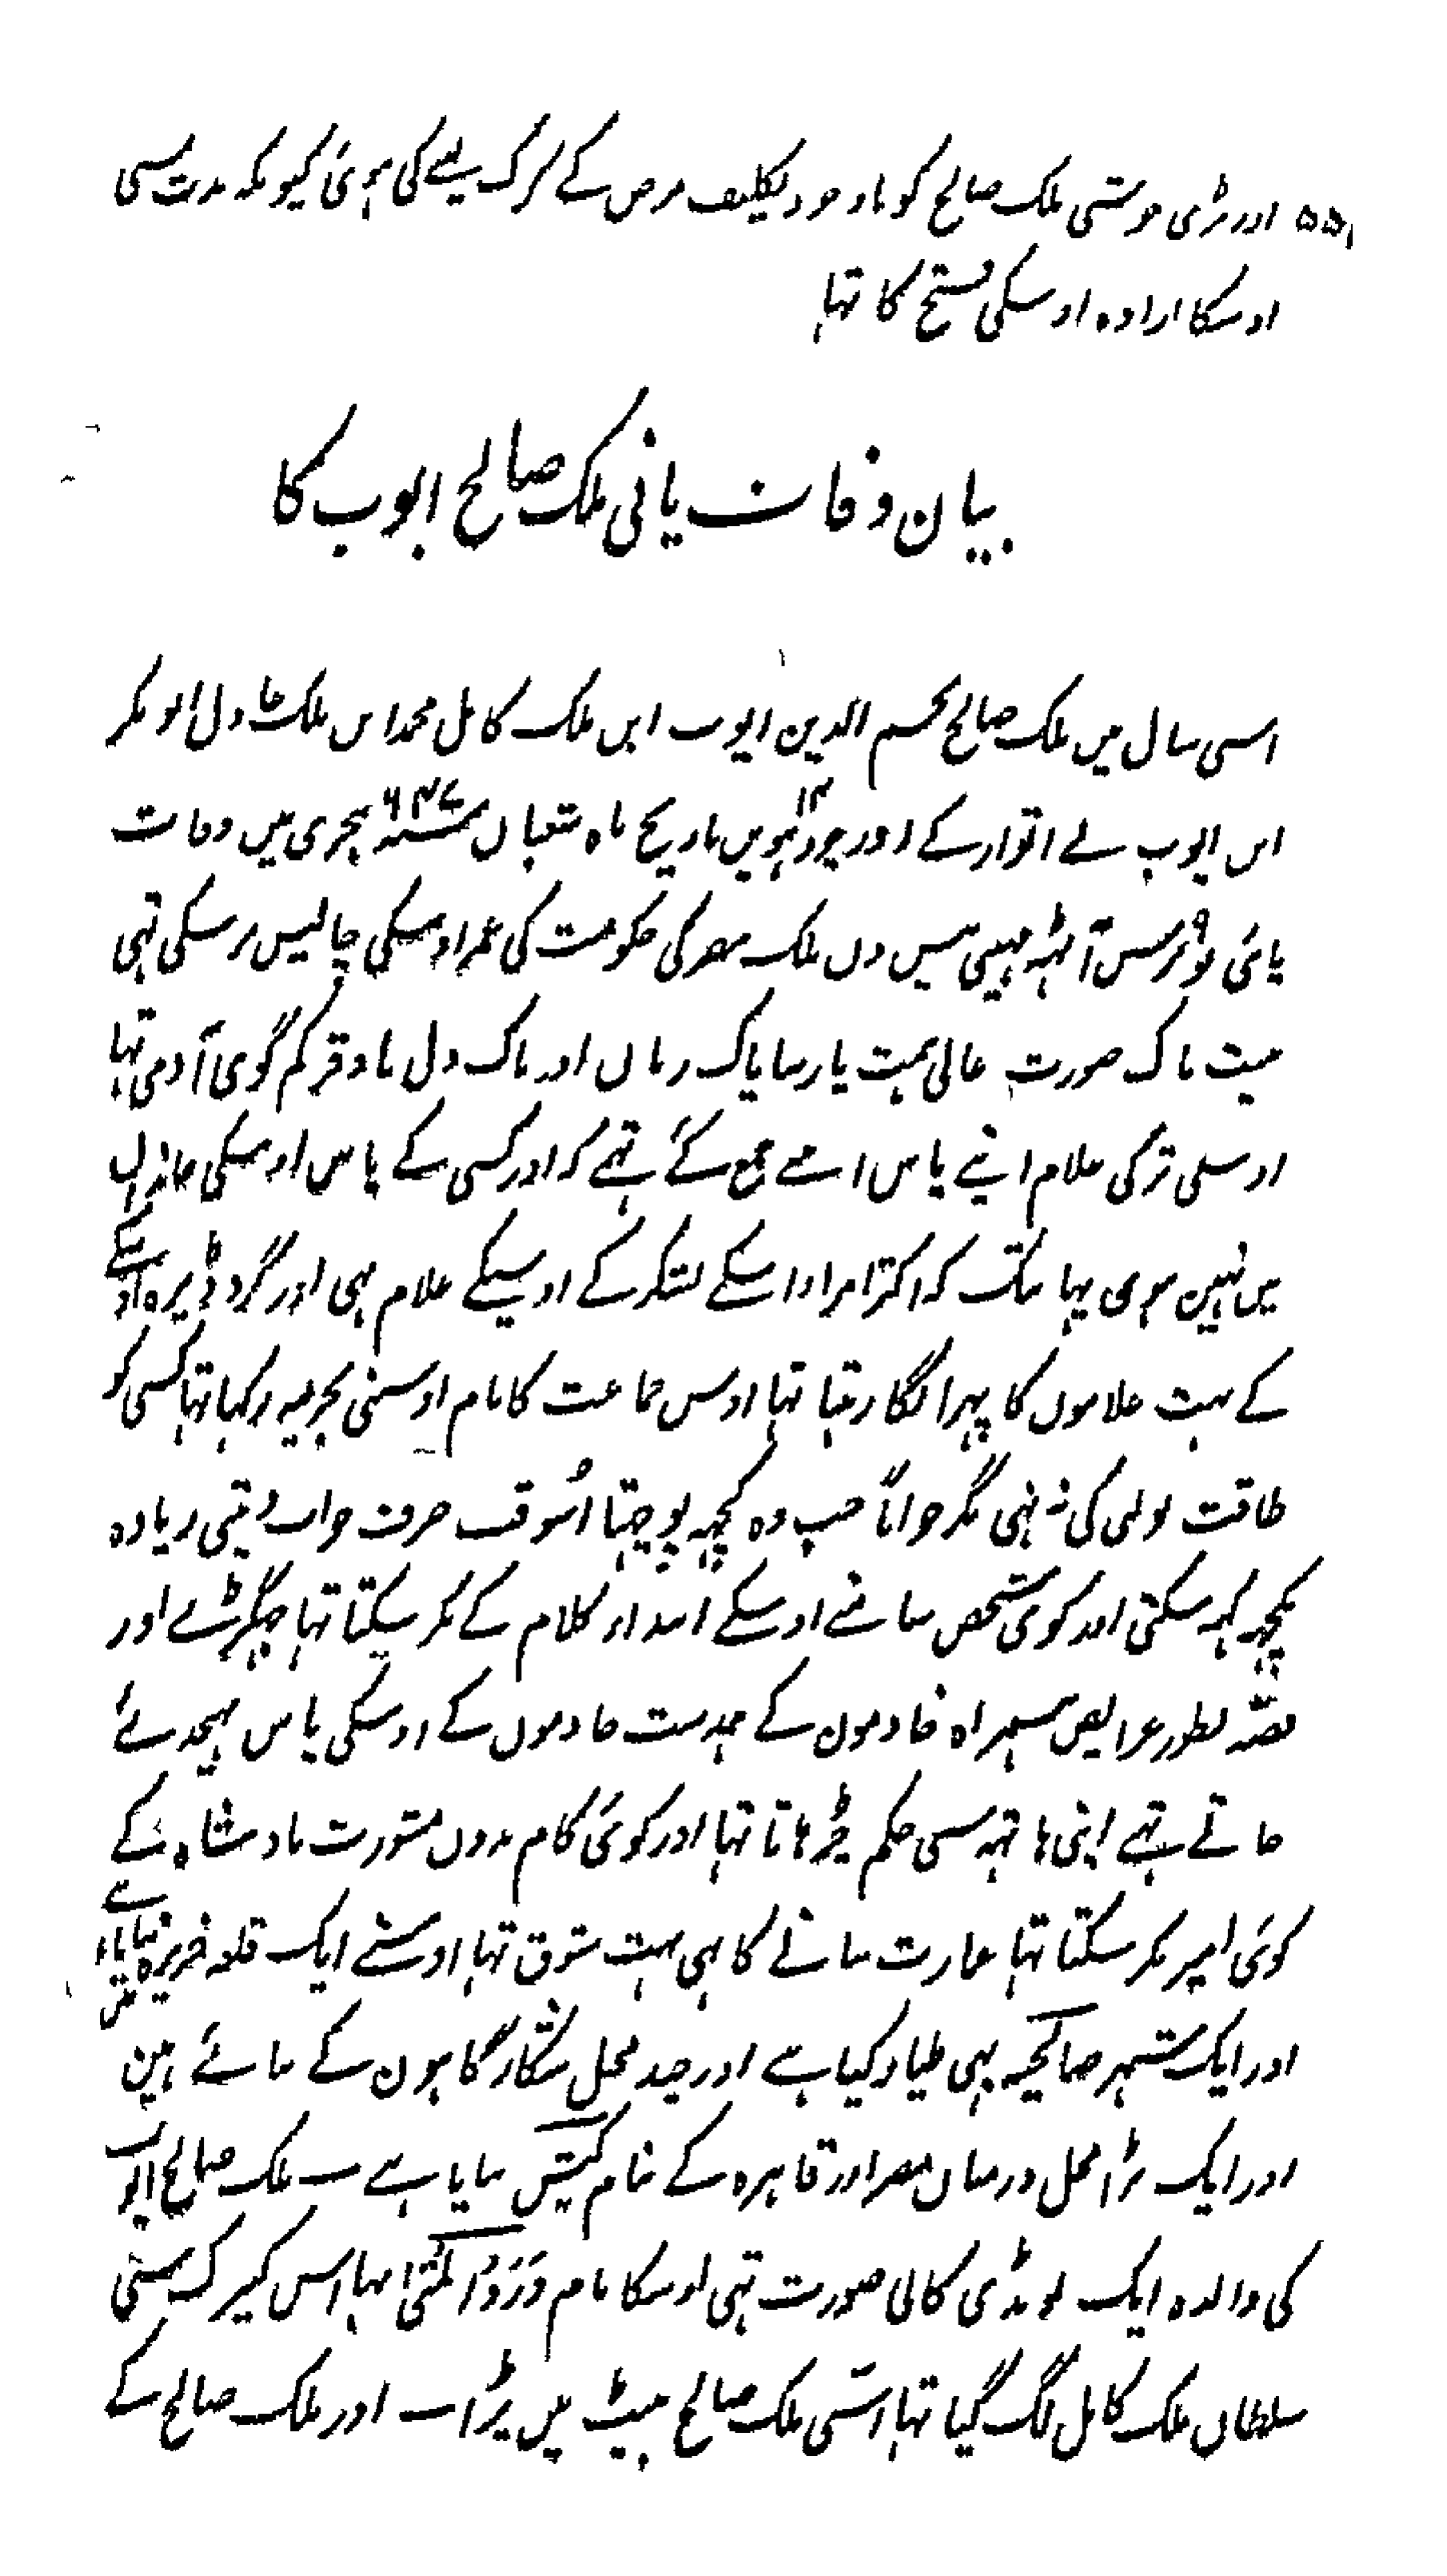 ۵۵۱ اور بڑی خوشی ملک صالح کو باوجود تکلیف مرض کے کرک لینے کی ہوئی کیونکہ مدت سی
اوسکا ارادہ اوسکی فتح کا تہا
بیان وفات پانی ملک صالح ایوب کا
اسی سال میں ملک صالح نجم الدین ایوب ابن ملک کامل محمد ابن ملک عادل ابو بکر
ابن ایوب نے اتوار کے روز چودہویں ۱۴ تاریخ ماہ شعبان سنہ ۶۴۷ ہجری میں وفات
پائی نو ۹ برس آٹھہ مہینی بیس دن ملک مصر کی حکومت کی عمر اوسکی چالیس برسکی تہی
ہیبت ناک صورت عالی ہمت پارسا پاک زبان اور پاک دل باوقر کم گوی آدمی تہا
اوسنی ترکی غلام اپنے پاس اتنے جمع کئے تہے کہ اور کسی کے پاس اوسکی خاندان
میں نہین ہوی یہانتک کہ اکثر امرا اوسکے لشکر کے اوسیکے غلام ہی اور گرد ڈیرہ اوسکے
کے بہت غلاموں کا پہرا لگا رہتا تہا اوس جماعت کا نام اوسنی بحریہ رکہا تہا کسی کو
طاقت بولنی کی نہ تہی مگر جواباً جب وہ کچہہ پوچہتا اُسوقت صرف جواب دیتی زیادہ
کچہہ کہہ سکتی اور کوی شخص سامنے اوسکے ابتداء کلام کے نکر سکتا تہا جہگڑے اور
قصّہ بطور عرایض ہمراہ خادمون کے بدست خادموں کے اوسکی پاس بہیجدئے
جاتے تہے اپنی ہاتہہ سی حکم چڑہاتا تہا اور کوئی کام بدون مشورت بادشاہ کے
کوئی امیر نکر سکتا تہا عمارت بنانے کا بہی بہت شوق تہا اوسنے ایک قلعہ جزیرہ میں بنایا ہے
اور ایک شہر صالحیہ بہی طیار کیا ہے اور چند محل شکارگاہون کے بنائے ہین
اور ایک بڑا محل درمیان مصر اور قاہرہ کے بنام کبش بنایا ہے ملک صالح ایوب
کی والدہ ایک لونڈی کالی صورت تہی اوسکا نام وَرَدُ المُنیٰ تہا اس کنیزک سنی
سلطان ملک کامل لگ گیا تہا اسّی ملک صالح پیٹ میں پڑا اور ملک صالح کے